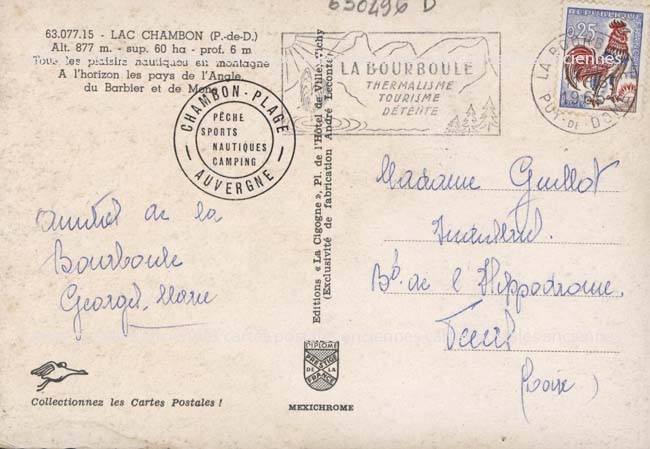 630496 D
63.077.15 - LAC CHAMBON (P.-de-D.)
Alt. 877 m. - sup. 60 ha - prof. 6 m
Tous les plaisirs nautiques en montagne
A l'horizon les pays de l'Angle,
du Barbier et de Mone
CHAMBON-PLAGE
PÊCHE
SPORTS
NAUTIQUES
CAMPING
AUVERGNE
LA BOURBOULE
THERMALISME
TOURISME
DÉTENTE
0,25
LA BOURBOULE
PUY-DE-DOME
Editions « La Cigogne », Pl. de l'Hôtel de Ville, Vichy
(Exclusivité de fabrication André Leconte)
amitiés de la
Bourboule
Georges Marie
Madame Guillot
Bd. de l'Hippodrome
(Loire)
cartes postales anciennes
DIPLOME
PRESTIGE
DE LA
FRANCE
Collectionnez les Cartes Postales !
MEXICHROME